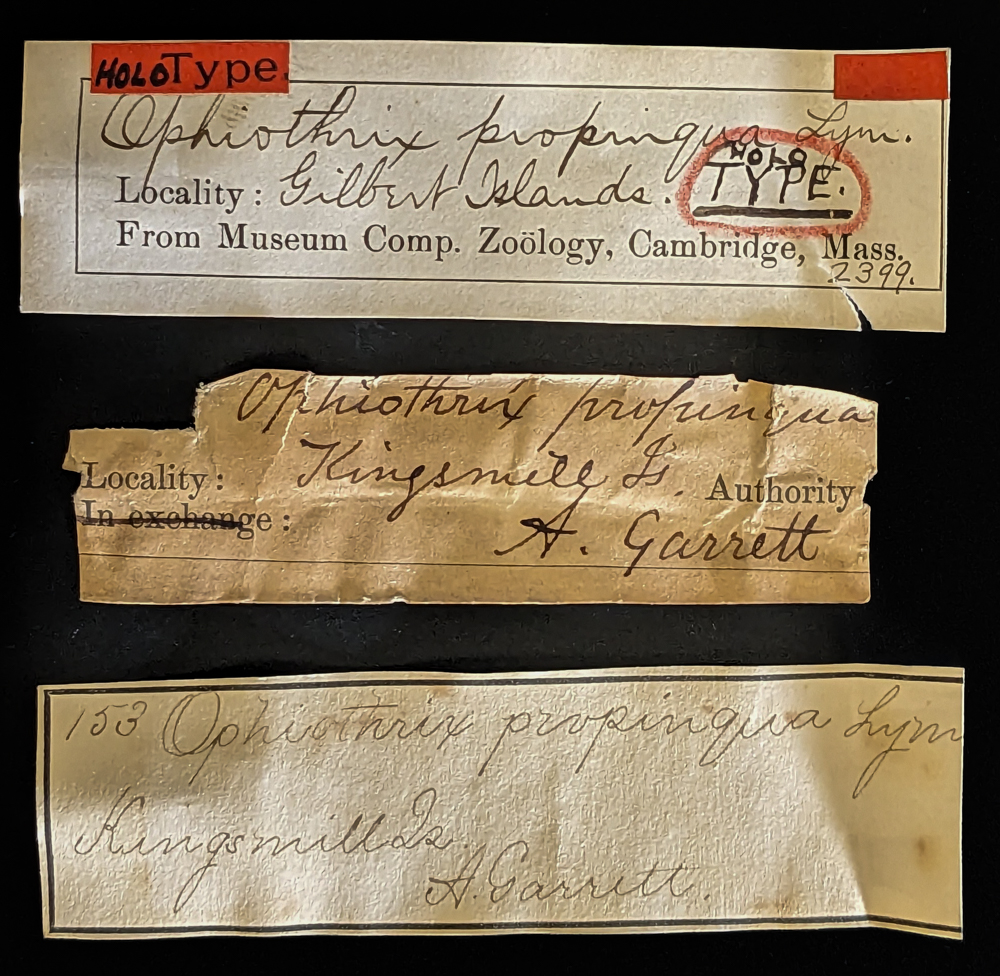 HOLOType.
Ophiothrix propinqua Lym.
HOLO
TYPE.
Locality: Gilbert Islands.
From Museum Comp. Zoölogy, Cambridge, Mass.
2399.
Ophiothrix propinqua
Locality: Kingsmill Is. Authority
In exchange:
A. Garrett
153 Ophiothrix propinqua Lym
Kingsmill Is.
A. Garrett.